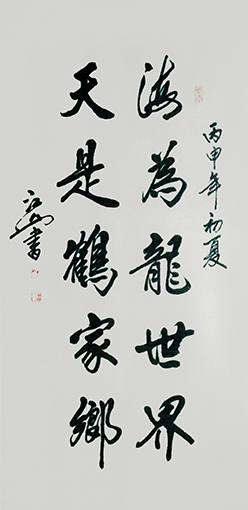 丙申年初夏
海為龍世界
天是鶴家鄉